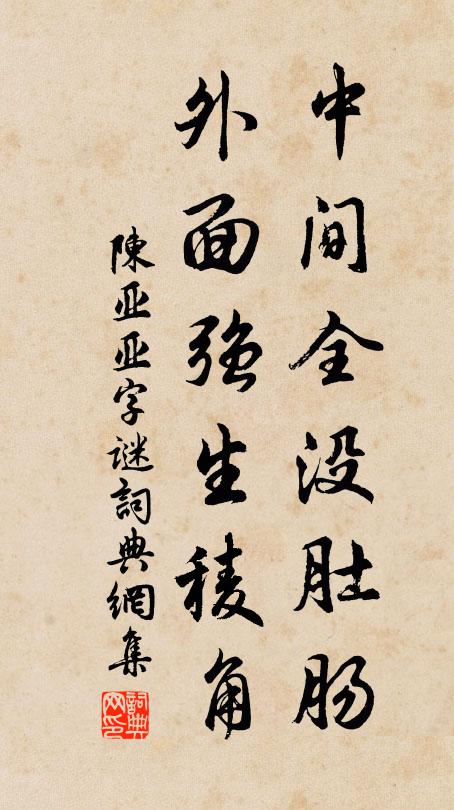 中间全没肚肠
外面强生稜角
陳亚亚字謎詞典網集
詞典网印